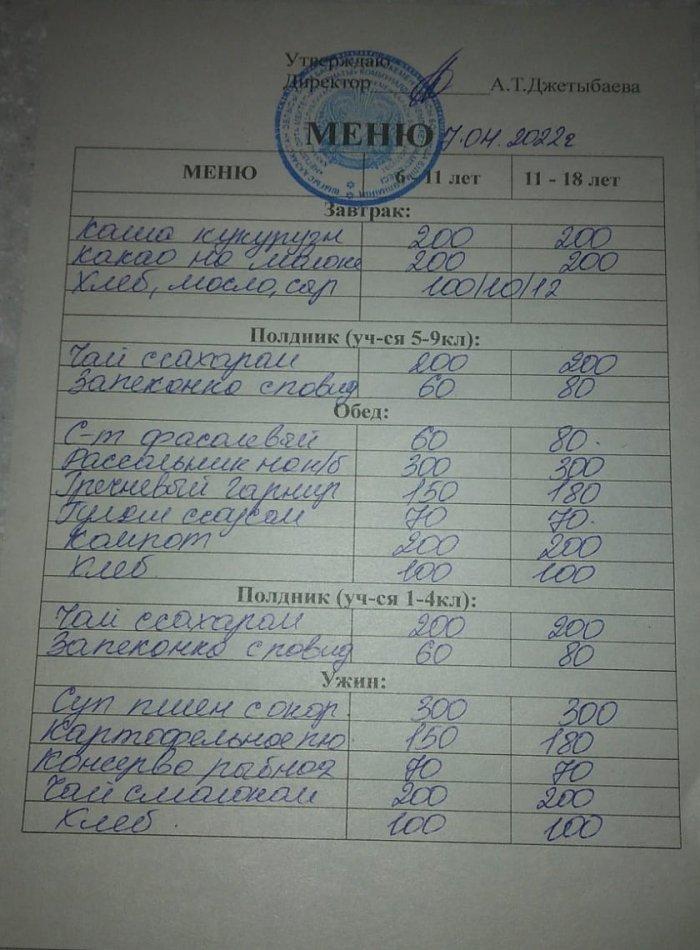 Утверждаю
Директор А.Т.Джетыбаева
МЕНЮ 7.04.2022г
МЕНЮ 6 - 11 лет 11 - 18 лет
Завтрак:
Каша кукурузн 200 200
Какао на малоке 200 200
Хлеб, масло, сыр 100/10/12
Полдник (уч-ся 5-9кл):
Чай ссахарам 200 200
Запеконка сповид 60 80
Обед:
С-т фасалевый 60 80.
Рассальник на к/б 300 300
Гречневый гарнир 150 180
Гуляш ссоусам 70 70.
Компот 200 200
Хлеб. 100 100
Полдник (уч-ся 1-4кл):
Чай ссахарам 200 200
Запеконка сповид 60 80
Ужин:
Суп пшен с окор. 300 300
Картофельное пю 150 180
Консерва рыбная 70 70
Чай смалокам 200 200
Хлеб. 100 100